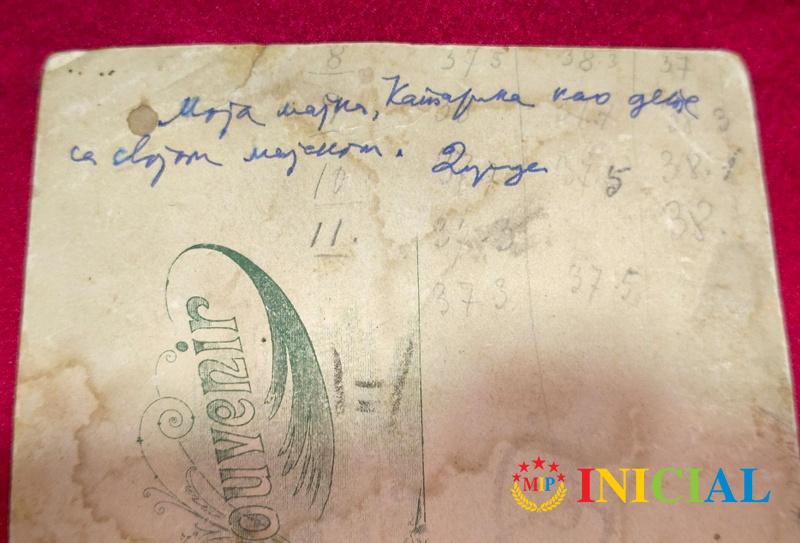 Моја мајка, Катарина као дете
са својом мајком.
8 375 383 37
10 5 38.
11. 38.
373 37.5
Souvenir
MIP INICIAL